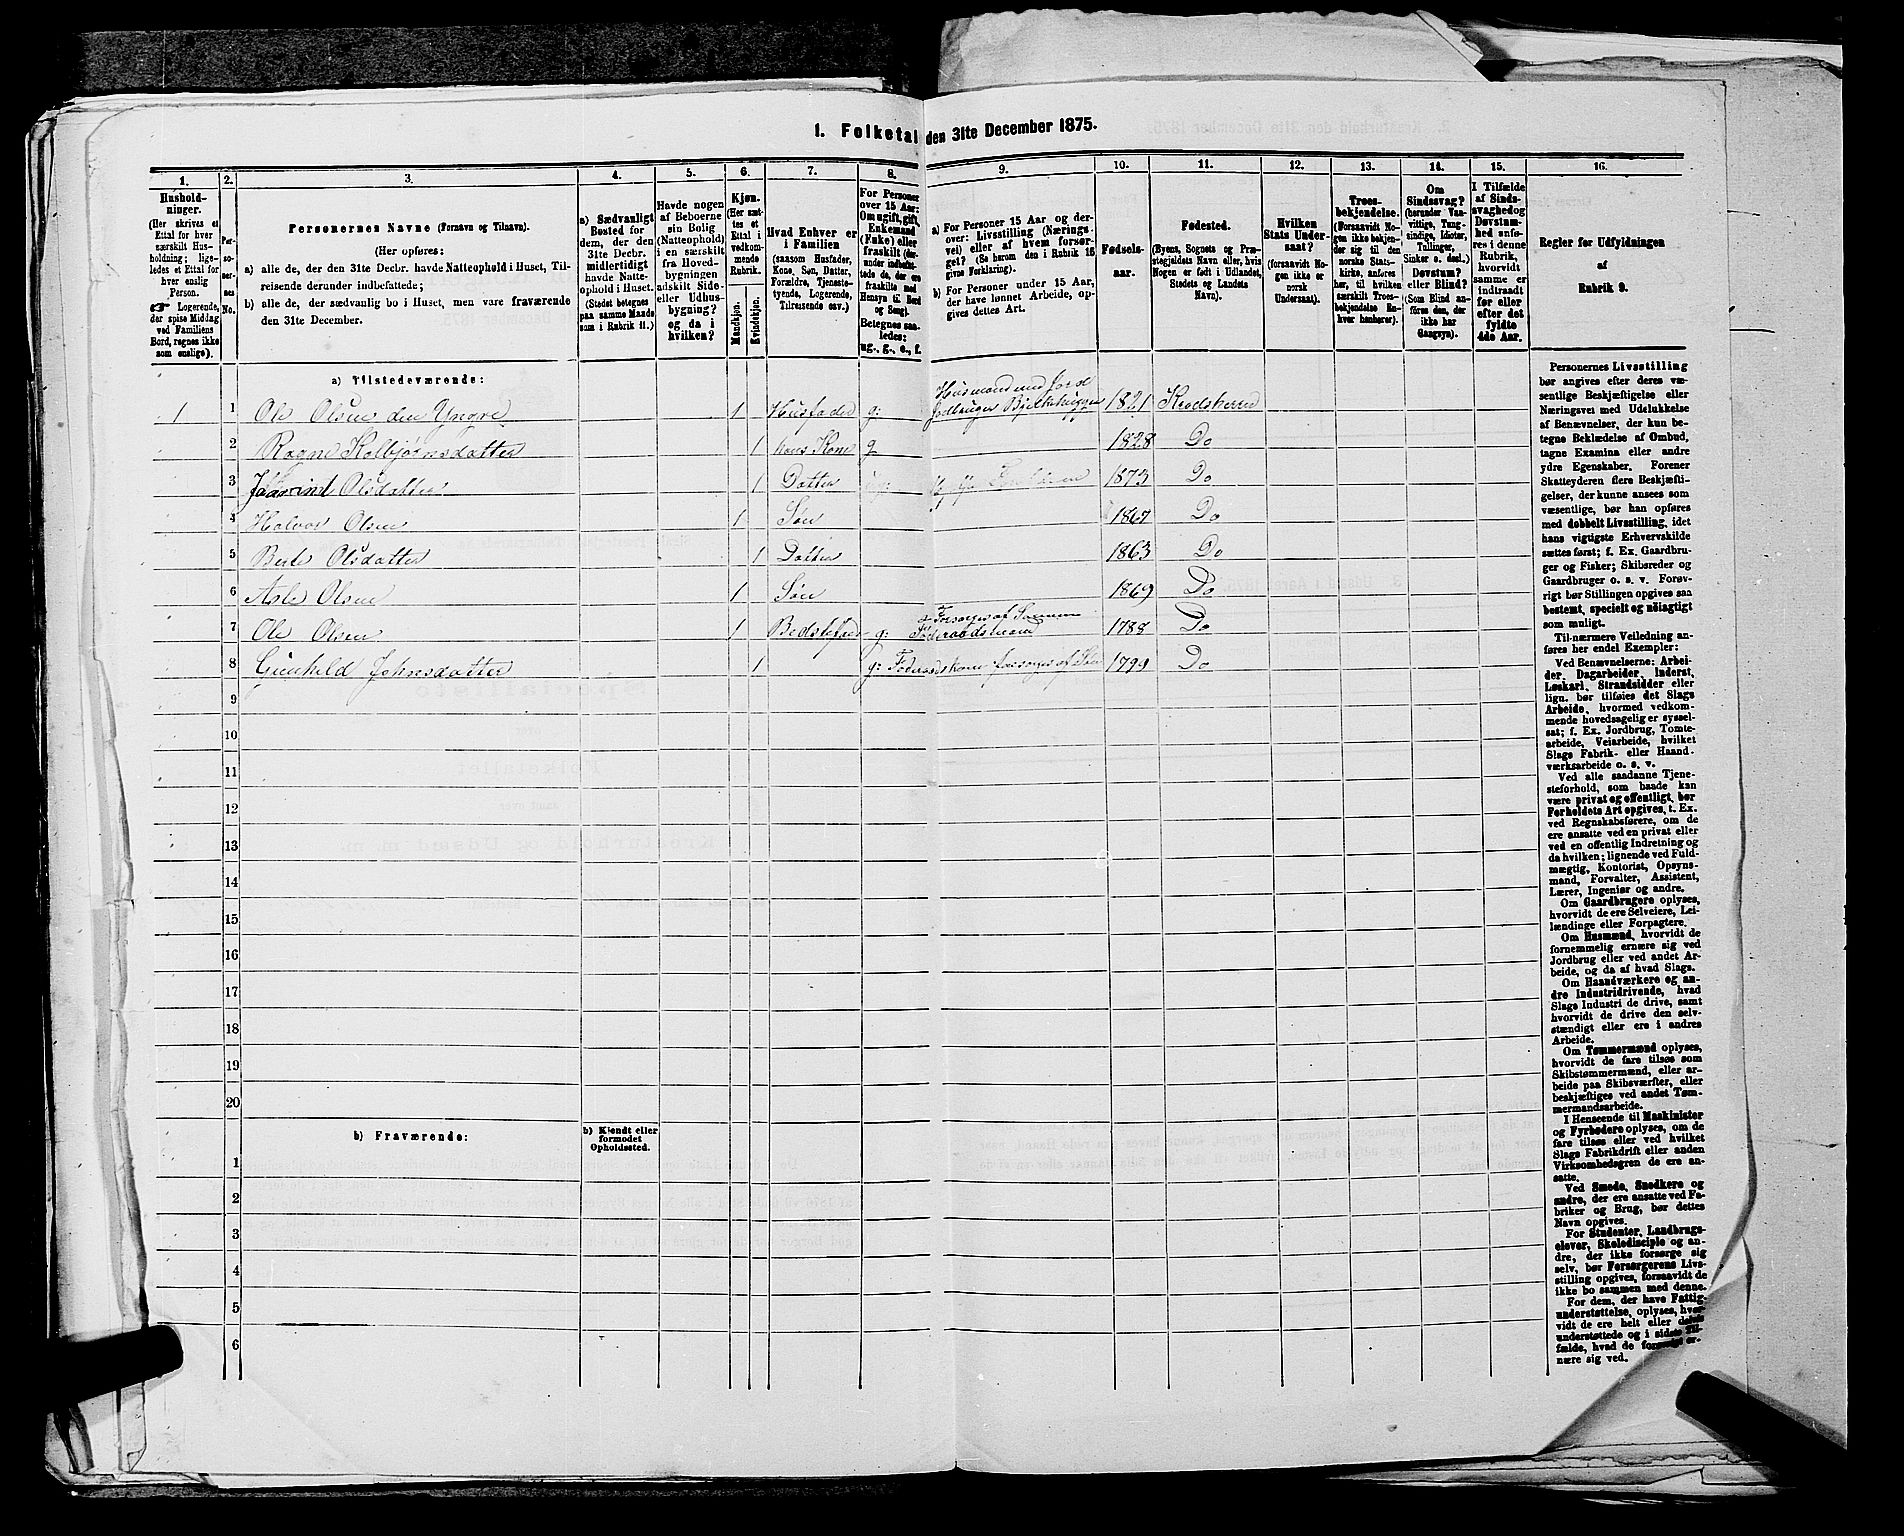 1. Folketal den 31te December 1875.
1. 2. 3. 4. 5. 6. 7. 8. 9. 10. 11. 12. 13. 14. 15. 16.
Hushold-
ninger.
(Her skrives et
Ettal for hver
særskilt Hus-
holdning; lige-
ledes et Ettal for
hver enslig
Person.
☞ Logerende,
der spise Middag
ved Familiens
Bord, regnes ikke
som enslige).
Per-
so-
ner-
nes
No.
Personernes Navne (Fornavn og Tilnavn).
(Her opføres:
a) alle de, der den 31te Decbr. havde Natteophold i Huset, Til-
reisende derunder indbefattede;
b) alle de, der sædvanlig bo i Huset, men vare fraværende
den 31te December.
a) Sædvanligt
Bosted for
dem, der den
31te Decbr.
midlertidigt
havde Natte-
ophold i Huset.
(Stedet betegnes
paa samme Maade
som i Rubrik 11.)
Havde nogen
af Beboerne
sin Bolig
(Natteophold)
i en særskilt
fra Hoved-
bygningen
adskilt Side-
eller Udhus-
bygning?
og da i
hvilken?
Kjøn.
(Her sæt-
tes et
Ettal i
vedkom-
mende
Rubrik.
Mandkjøn.
Kvindekjøn.
Hvad Enhver er
i Familien
(saasom Husfader,
Kone, Søn, Datter,
Forældre, Tjeneste-
tyende, Logerende,
Tilreisende osv.)
For Personer
over 15 Aar:
Om ugift, gift,
Enkemand
(Enke) eller
fraskilt (der-
under indbefat-
tede de, der ere
fraskilte med
Hensyn til Bord
og Seng).
Betegnes saa-
ledes:
ug., g., e., f.
a) For Personer 15 Aar og der-
over: Livsstilling (Nærings-
vei) eller af hvem forsør-
get? (Se herom den i Rubrik 16
givne Forklaring).
b) For Personer under 15 Aar,
der have lønnet Arbeide, op-
gives dettes Art.
Fødsels-
aar.
Fødested.
(Byens, Sognets og Præ-
stegjeldets Navn eller, hvis
Nogen er født i Udlandet,
Stedets og Landets
Navn).
Hvilken
Stats Under-
saat?
(forsaavidt No-
gen ikke er
norsk
Undersaat).
Troes-
bekjendelse.
(Forsaavidt No-
gen ikke bekjen-
der sig til den
norske Stats-
kirke, anføres
her, til hvilken
særskilt Troes-
bekjendelse En-
hver henhører).
Om
Sindssvag?
(herunder Van-
vittige, Tung-
sindige, Idioter,
Tullinger,
Sinker o. desl.)
Døvstum?
eller Blind?
(Som Blind an-
føres den, der
ikke har
Gangsyn).
I Tilfælde
af Sinds-
svaghed og
Døvstum-
hed anfø-
res i denne
Rubrik,
hvorvidt
samme er
indtraadt
før eller
efter det
fyldte
4de Aar.
Regler for Udfyldningen
af
Rubrik 9.
a) Tilstedeværende:
Husmand med Jord
1 1 Ole Olsen den Yngre 1 Husfader g: 1821 Krødsherred
2 Ragne Kolbjørnsdatter 1 hans Kone g 1828 Do
3 Olsdatter 1 Datter 1873 Do
4 Halvor Olsen 1 Søn 1867 Do
5 Berte Olsdatter 1 Datter 1863 Do
6 Asle Olsen 1 Søn 1869 Do
7 Ole Olsen 1 Bedstefader g: Forsørges af Sønnen
Føderaadsmand 1788 Do
8 Gunhild Johnsdatter 1 g: Føderaadskone forsørges af Søn 1799 Do
9
10
11
12
13
14
15
16
17
18
19
20
b) Fraværende:
b) Kjendt eller
formodet
Opholdssted.
1
2
3
4
5
6
Personernes Livsstilling
bør angives efter deres væ-
sentlige Beskjæftigelse eller
Næringsvei med Udelukkelse
af Benævnelser, der kun be-
tegne Beklædelse af Ombud,
tagne Examina eller andre
ydre Egenskaber. Forener
Skatteyderen flere Beskjæfti-
gelser, der kunne ansees som
væsentlige, bør han opføres
med dobbelt Livsstilling, idet
hans vigtigste Erhvervskilde
sættes først; f. Ex. Gaardbru-
ger og Fisker; Skibsreder og
Gaardbruger o. s. v. Forøv-
rigt bør Stillingen opgives saa
bestemt, specielt og nøiagtigt
som muligt.
Til nærmere Veiledning an-
føres her endel Exempler:
Ved Benævnelserne: Arbei-
der, Dagarbeider, Inderst,
Løskarl, Strandsidder eller
lign. bør tilføies det Slags
Arbeide, hvormed vedkom-
mende hovedsagelig er syssel-
sat; f. Ex. Jordbrug, Tomte-
arbeide, Veiarbeide, hvilket
Slags Fabrik- eller Haand-
værksarbeide o. s. v.
Ved alle saadanne Tjene-
steforhold, som baade kan
være privat og offentligt, bør
Forholdets Art opgives, t. Ex.
ved Regnskabsførere, om de
ere ansatte ved en privat eller
ved en offentlig Indretning og
da hvilken; lignende ved Fuld-
mægtig, Kontorist, Opsyns-
mand, Forvalter, Assistent,
Lærer, Ingeniør og andre.
Om Gaardbrugere oplyses,
hvorvidt de ere Selveiere, Lei-
lændinge eller Forpagtere.
Om Husmænd, hvorvidt de
fornemmelig ernære sig ved
Jordbrug eller ved andet Ar-
beide, og da af hvad Slags.
Om Haandværkere og an-
dre Industridrivende, hvad
Slags Industri de drive, samt
hvorvidt de drive den selv-
stændigt eller ere i andres
Arbeide.
Om Tømmermænd oplyses,
hvorvidt de fare tilsøs som
Skibstømmermænd, eller ar-
beide paa Skibsværfter, eller
beskjæftiges ved andet Tøm-
mermandsarbeide.
I Henseende til Maskinister
og Fyrbødere oplyses, om de
fare tilsøs eller ved hvilket
Slags Fabrikdrift eller anden
Virksomhedsgren de ere an-
satte.
Ved Smede, Snedkere og
andre, der ere ansatte ved Fa-
briker og Brug, bør dettes
Navn opgives.
For Studenter, Landbrugs-
elever, Skoledisciple og an-
dre, der ikke forsørge sig
selv, bør Forsørgerens Livs-
stilling opgives, forsaavidt de
ikke bo sammen med denne.
For dem, der have Fattig-
understøttelse, oplyses, hvor-
vidt de ere helt eller delvis
understøttede og i sidste Til-
fælde, hvad de forøvrigt er-
nære sig ved.